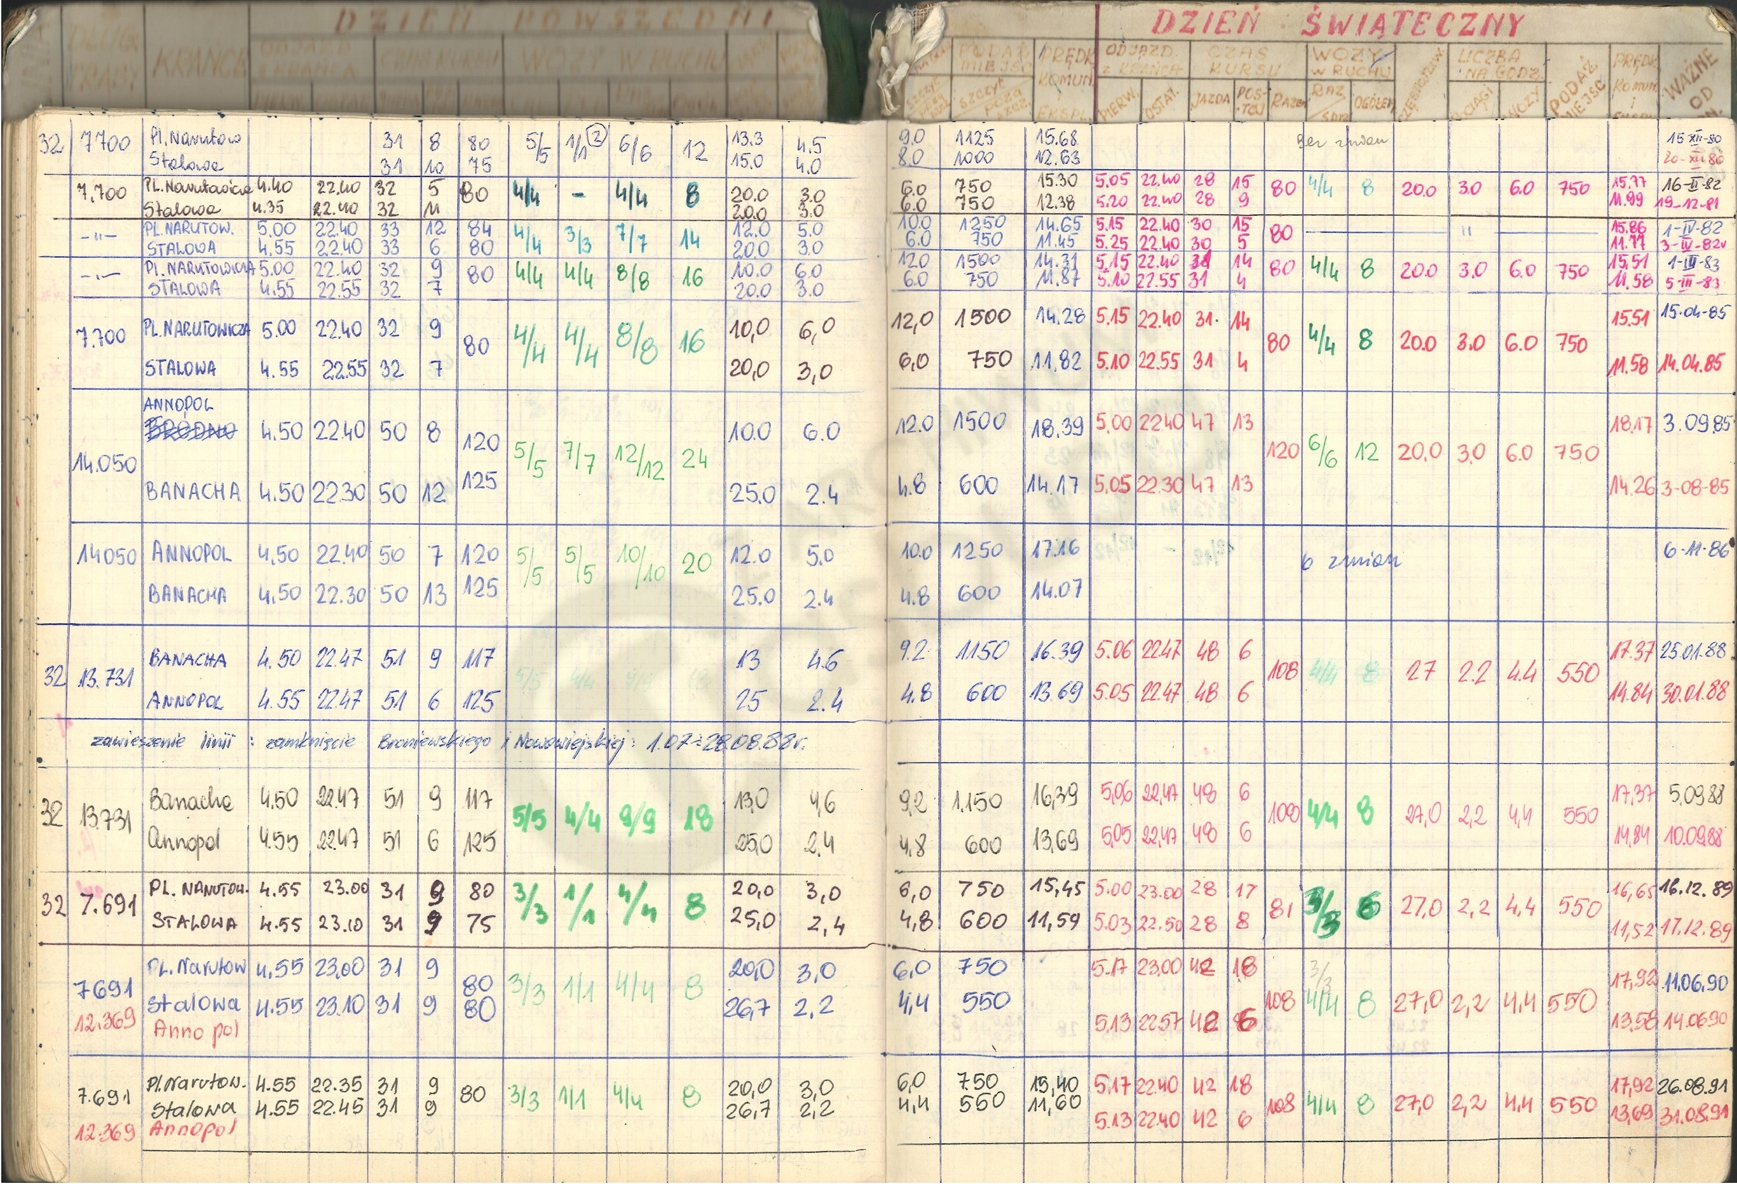 DZIEŃ POWSZEDNI
DZIEŃ ŚWIĄTECZNY
KRAŃCE ODJAZD Z KRAŃCA CZAS KURSU WOZY W RUCHU
PODAŻ MIEJSC PRĘDK. KOMUN. EKSPL. ODJAZD z KRAŃCA PIERW. OSTAT. CZAS KURSU JAZDA POSTÓJ RAZEM WOZY w RUCHU RAZ OGÓŁEM LICZBA NA GODZ. PODAŻ MIEJSC PRĘDK. KOMUN. WAŻNE OD
32 7.700 Pl. Narutow 31 8 80 5/5 1/1 (2) 6/6 12 13.3 4.5 9.0 1125 15.68 Bez zmian 15-XII-80
Stalowa 31 10 75 15.0 4.0 8.0 1000 12.63 20-XII-80
7.700 PL. Narutowicza 4.40 22.40 32 5 80 4/4 - 4/4 8 20.0 3.0 6.0 750 15.30 5.05 22.40 28 15 80 4/4 8 20.0 3.0 6.0 750 15.77 16-II-82
Stalowa 4.35 22.40 32 11 20.0 3.0 6.0 750 12.38 5.20 22.40 28 9 11.99 19-12-81
-"- PL. NARUTOW. 5.00 22.40 33 12 84 4/4 3/3 7/7 14 12.0 5.0 10.0 1250 14.65 5.15 22.40 30 15 80 " 15.86 1-IV-82
STALOWA 4.55 22.40 33 6 80 20.0 3.0 6.0 750 11.45 5.25 22.40 30 5 11.77 3-IV-82
-"- Pl. NARUTOWICZA 5.00 22.40 32 9 80 4/4 4/4 8/8 16 10.0 6.0 12.0 1500 14.31 5.15 22.40 31 14 80 4/4 8 20.0 3.0 6.0 750 15.51 1-III-83
STALOWA 4.55 22.55 32 7 20.0 3.0 6.0 750 11.87 5.10 22.55 31 4 11.58 5-III-83
7.700 PL. NARUTOWICZA 5.00 22.40 32 9 80 4/4 4/4 8/8 16 10,0 6,0 12,0 1500 14,28 5.15 22.40 31. 14 80 4/4 8 20.0 3.0 6.0 750 15.51 15.04.85
STALOWA 4.55 22.55 32 7 20,0 3,0 6,0 750 11,82 5.10 22.55 31 4 11.58 14.04.85
ANNOPOL
14.050 BRÓDNO 4.50 22.40 50 8 120 5/5 7/7 12/12 24 10.0 6.0 12.0 1500 18.39 5.00 22.40 47 13 120 6/6 12 20,0 3.0 6.0 750 18.17 3.09.85
BANACHA 4.50 22.30 50 12 125 25.0 2.4 4.8 600 14.17 5.05 22.30 47 13 14.26 3-08-85
14050 ANNOPOL 4,50 22.40 50 7 120 5/5 5/5 10/10 20 12.0 5.0 10.0 1250 17.16 b zmian 6-11-86
BANACHA 4.50 22.30 50 13 125 25.0 2.4 4.8 600 14.07
32 13.731 BANACHA 4.50 22.47 51 9 117 5/5 4/4 9/9 18 13 4.6 9.2 1150 16.39 5.06 22.47 48 6 108 4/4 8 27 2.2 4.4 550 17.37 25.01.88
ANNOPOL 4.55 22.47 51 6 125 25 2.4 4.8 600 13.69 5.05 22.47 48 6 14.84 30.01.88
zawieszenie linii : zamknięcie Broniewskiego i Nowowiejskiej: 1.07÷28.08.88r.
32 13.731 Banacha 4.50 22.47 51 9 117 5/5 4/4 9/9 18 13,0 4,6 9,2 1,150 16,39 5,06 22,47 48 6 108 4/4 8 27,0 2,2 4,4 550 17,37 5.09.88
Annopol 4.55 22.47 51 6 125 25,0 2,4 4,8 600 13,69 5,05 22,47 48 6 14,84 10.09.88
32 7.691 PL. NARUTOW. 4.55 23.00 31 9 80 3/3 1/1 4/4 8 20,0 3,0 6,0 750 15,45 5.00 23.00 28 17 81 3/3 6 27,0 2,2 4,4 550 16,65 16.12.89
STALOWA 4.55 23.10 31 9 75 25,0 2,4 4,8 600 11,59 5.03 22.50 28 8 11,52 17.12.89
7691 PL. Narutow 4,55 23,00 31 9 80 3/3 1/1 4/4 8 20,0 3,0 6,0 750 5.17 23,00 42 18 108 3/3 4/4 8 27,0 2,2 4,4 550 17,92 11.06.90
Stalowa 4.55 23.10 31 9 80 26,7 2,2 4,4 550
12.369 Annopol 5.13 22.57 42 6 13,58 14.06.90
7.691 Pl. Narutow. 4.55 22.35 31 9 80 3/3 1/1 4/4 8 20,0 3,0 6,0 750 15,40 5.17 22.40 42 18 108 4/4 8 27,0 2,2 4,4 550 17,92 26.08.91
Stalowa 4.55 22.45 31 9 26,7 2,2 4,4 550 11,60
12.369 Annopol 5.13 22.40 42 6 13,69 31.08.91